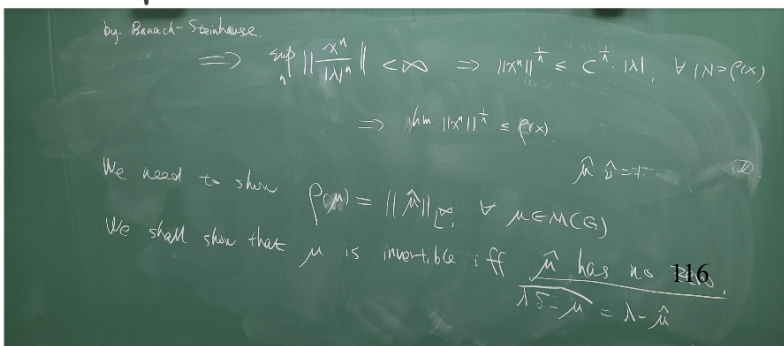 by Banach-Steinhause.
⟹ sup_n ||x^n / |λ|^n|| < ∞ ⟹ ||x^n||^{1/n} ≤ C^{1/n} |λ|, ∀ |λ| > ρ(x)
⟹ lim ||x^n||^{1/n} ≤ ρ(x)
μ̂ ν̂ = 1
We need to show ρ(μ) = ||μ̂||_{L^∞}, ∀ μ ∈ M(G)
We shall show that μ is invertible iff μ̂ has no
116
\widehat{λδ - μ} = λ - μ̂